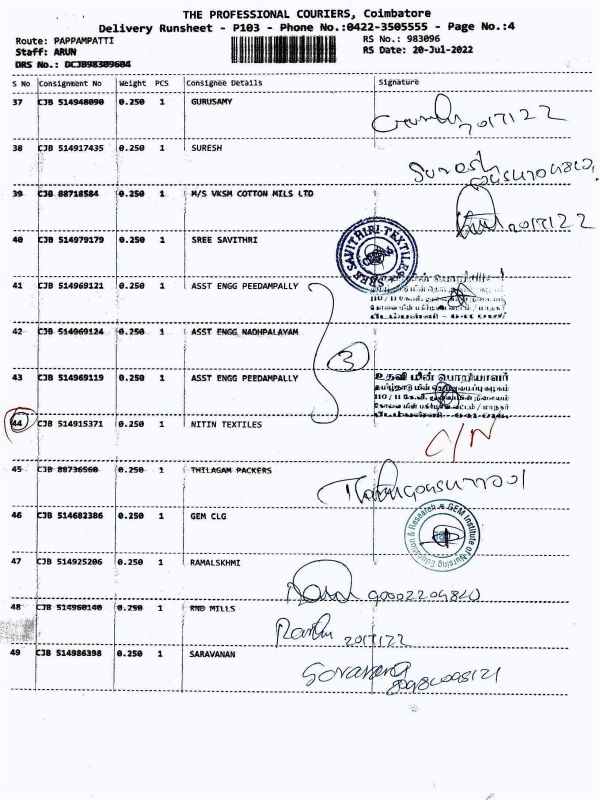 THE PROFESSIONAL COURIERS, Coimbatore
Delivery Runsheet - P103 - Phone No.:0422-3505555 - Page No.:4
Route: PAPPAMPATTI RS No.: 983096
Staff: ARUN RS Date: 20-Jul-2022
DRS No.: DCJB98309604
S No Consignment No Weight PCS Consignee Details Signature
37 CJB 514948090 0.250 1 GURUSAMY
2017122
38 CJB 514917435 0.250 1 SURESH
Suresh
39 CJB 88718584 0.250 1 M/S VKSM COTTON MILS LTD
2017122
40 CJB 514979179 0.250 1 SREE SAVITHRI
SREE SAVITHIRI TEXTILES
41 CJB 514969121 0.250 1 ASST ENGG PEEDAMPALLY
42 CJB 514969124 0.250 1 ASST ENGG NADHPALAYAM
3
43 CJB 514969119 0.250 1 ASST ENGG PEEDAMPALLY
உதவி மின் பொறியாளர்
44 CJB 514915371 0.250 1 NITIN TEXTILES
C/N
45 CJB 88736560 0.250 1 THILAGAM PACKERS
46 CJB 514682386 0.250 1 GEM CLG
GEM Institute of Nursing Education & Research
47 CJB 514925206 0.250 1 RAMALSKHMI
48 CJB 514960140 0.250 1 RND MILLS
2017122
49 CJB 514986398 0.250 1 SARAVANAN